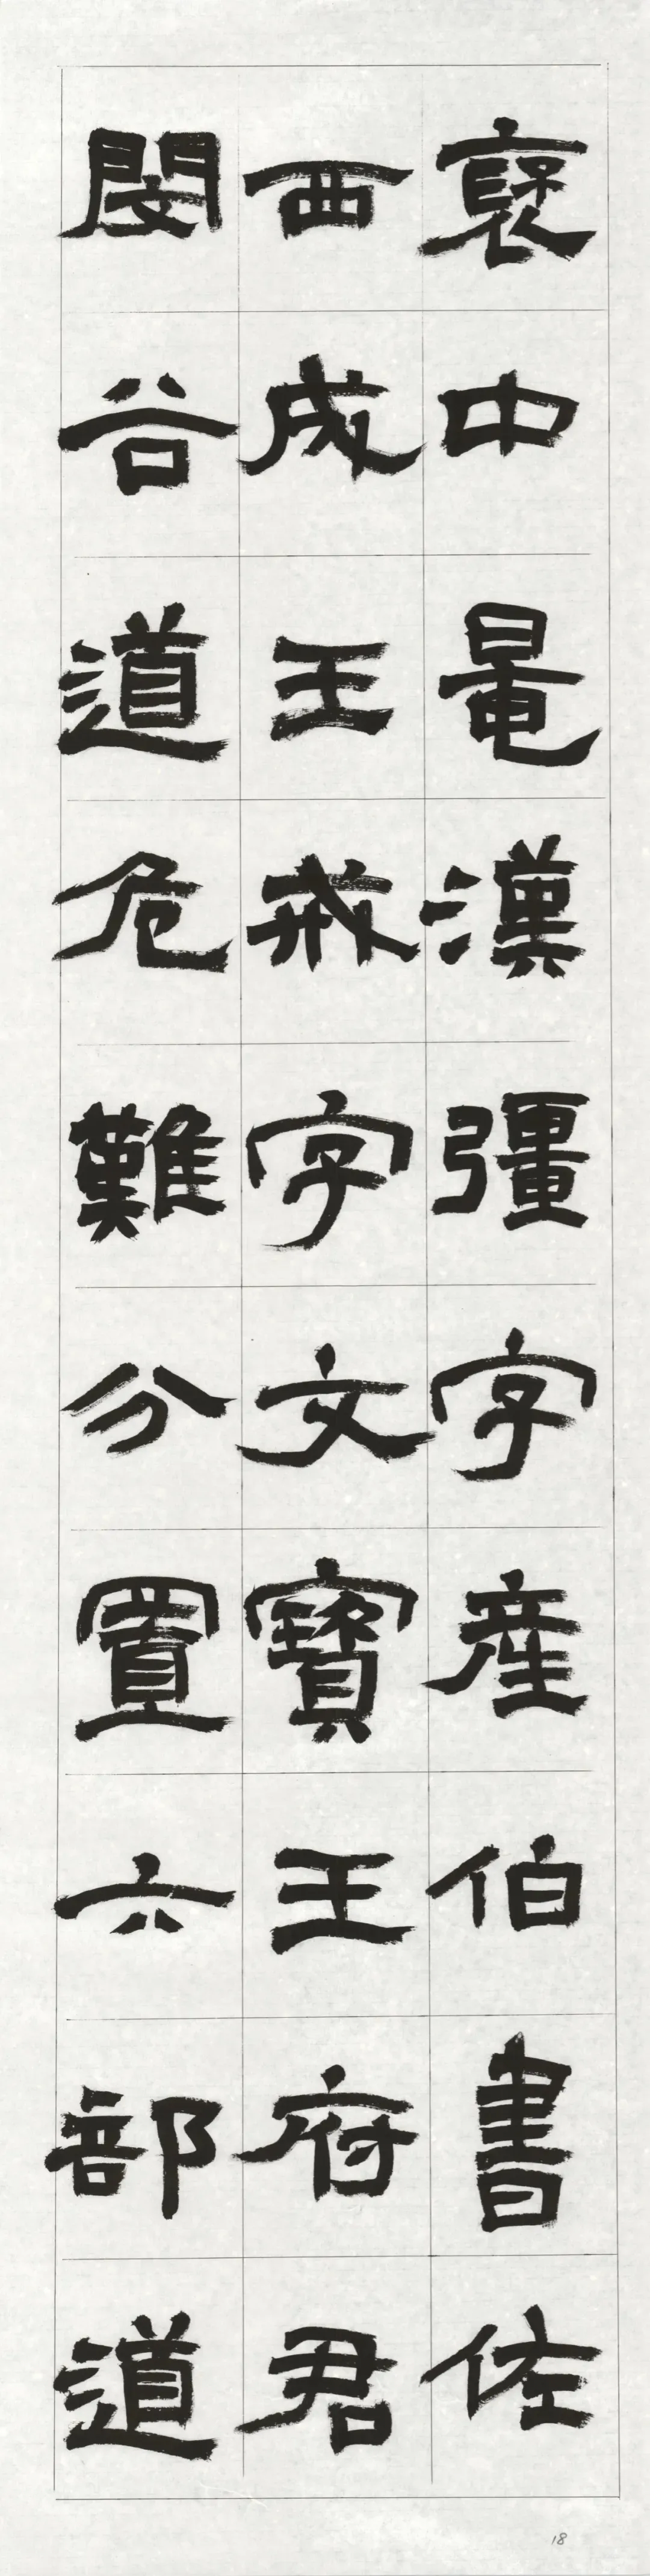 褒中鼂漢彊字產伯書佐
西成王戒字文寶王府君
閔谷道危難分置六部道
18